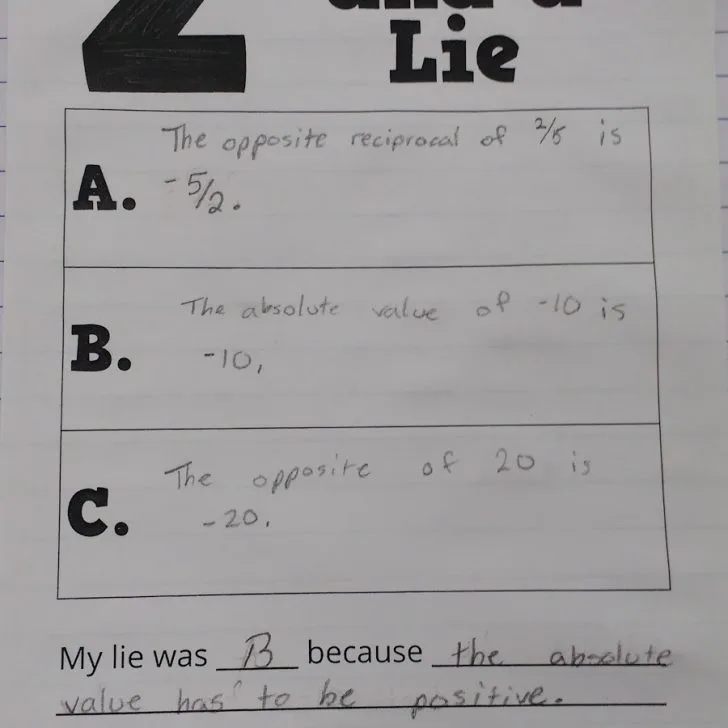 2 and a
Lie
The opposite reciprocal of 2/5 is
A. - 5/2.
The absolute value of -10 is
B. -10,
The opposite of 20 is
C. -20.
My lie was B because the absolute
value has to be positive.